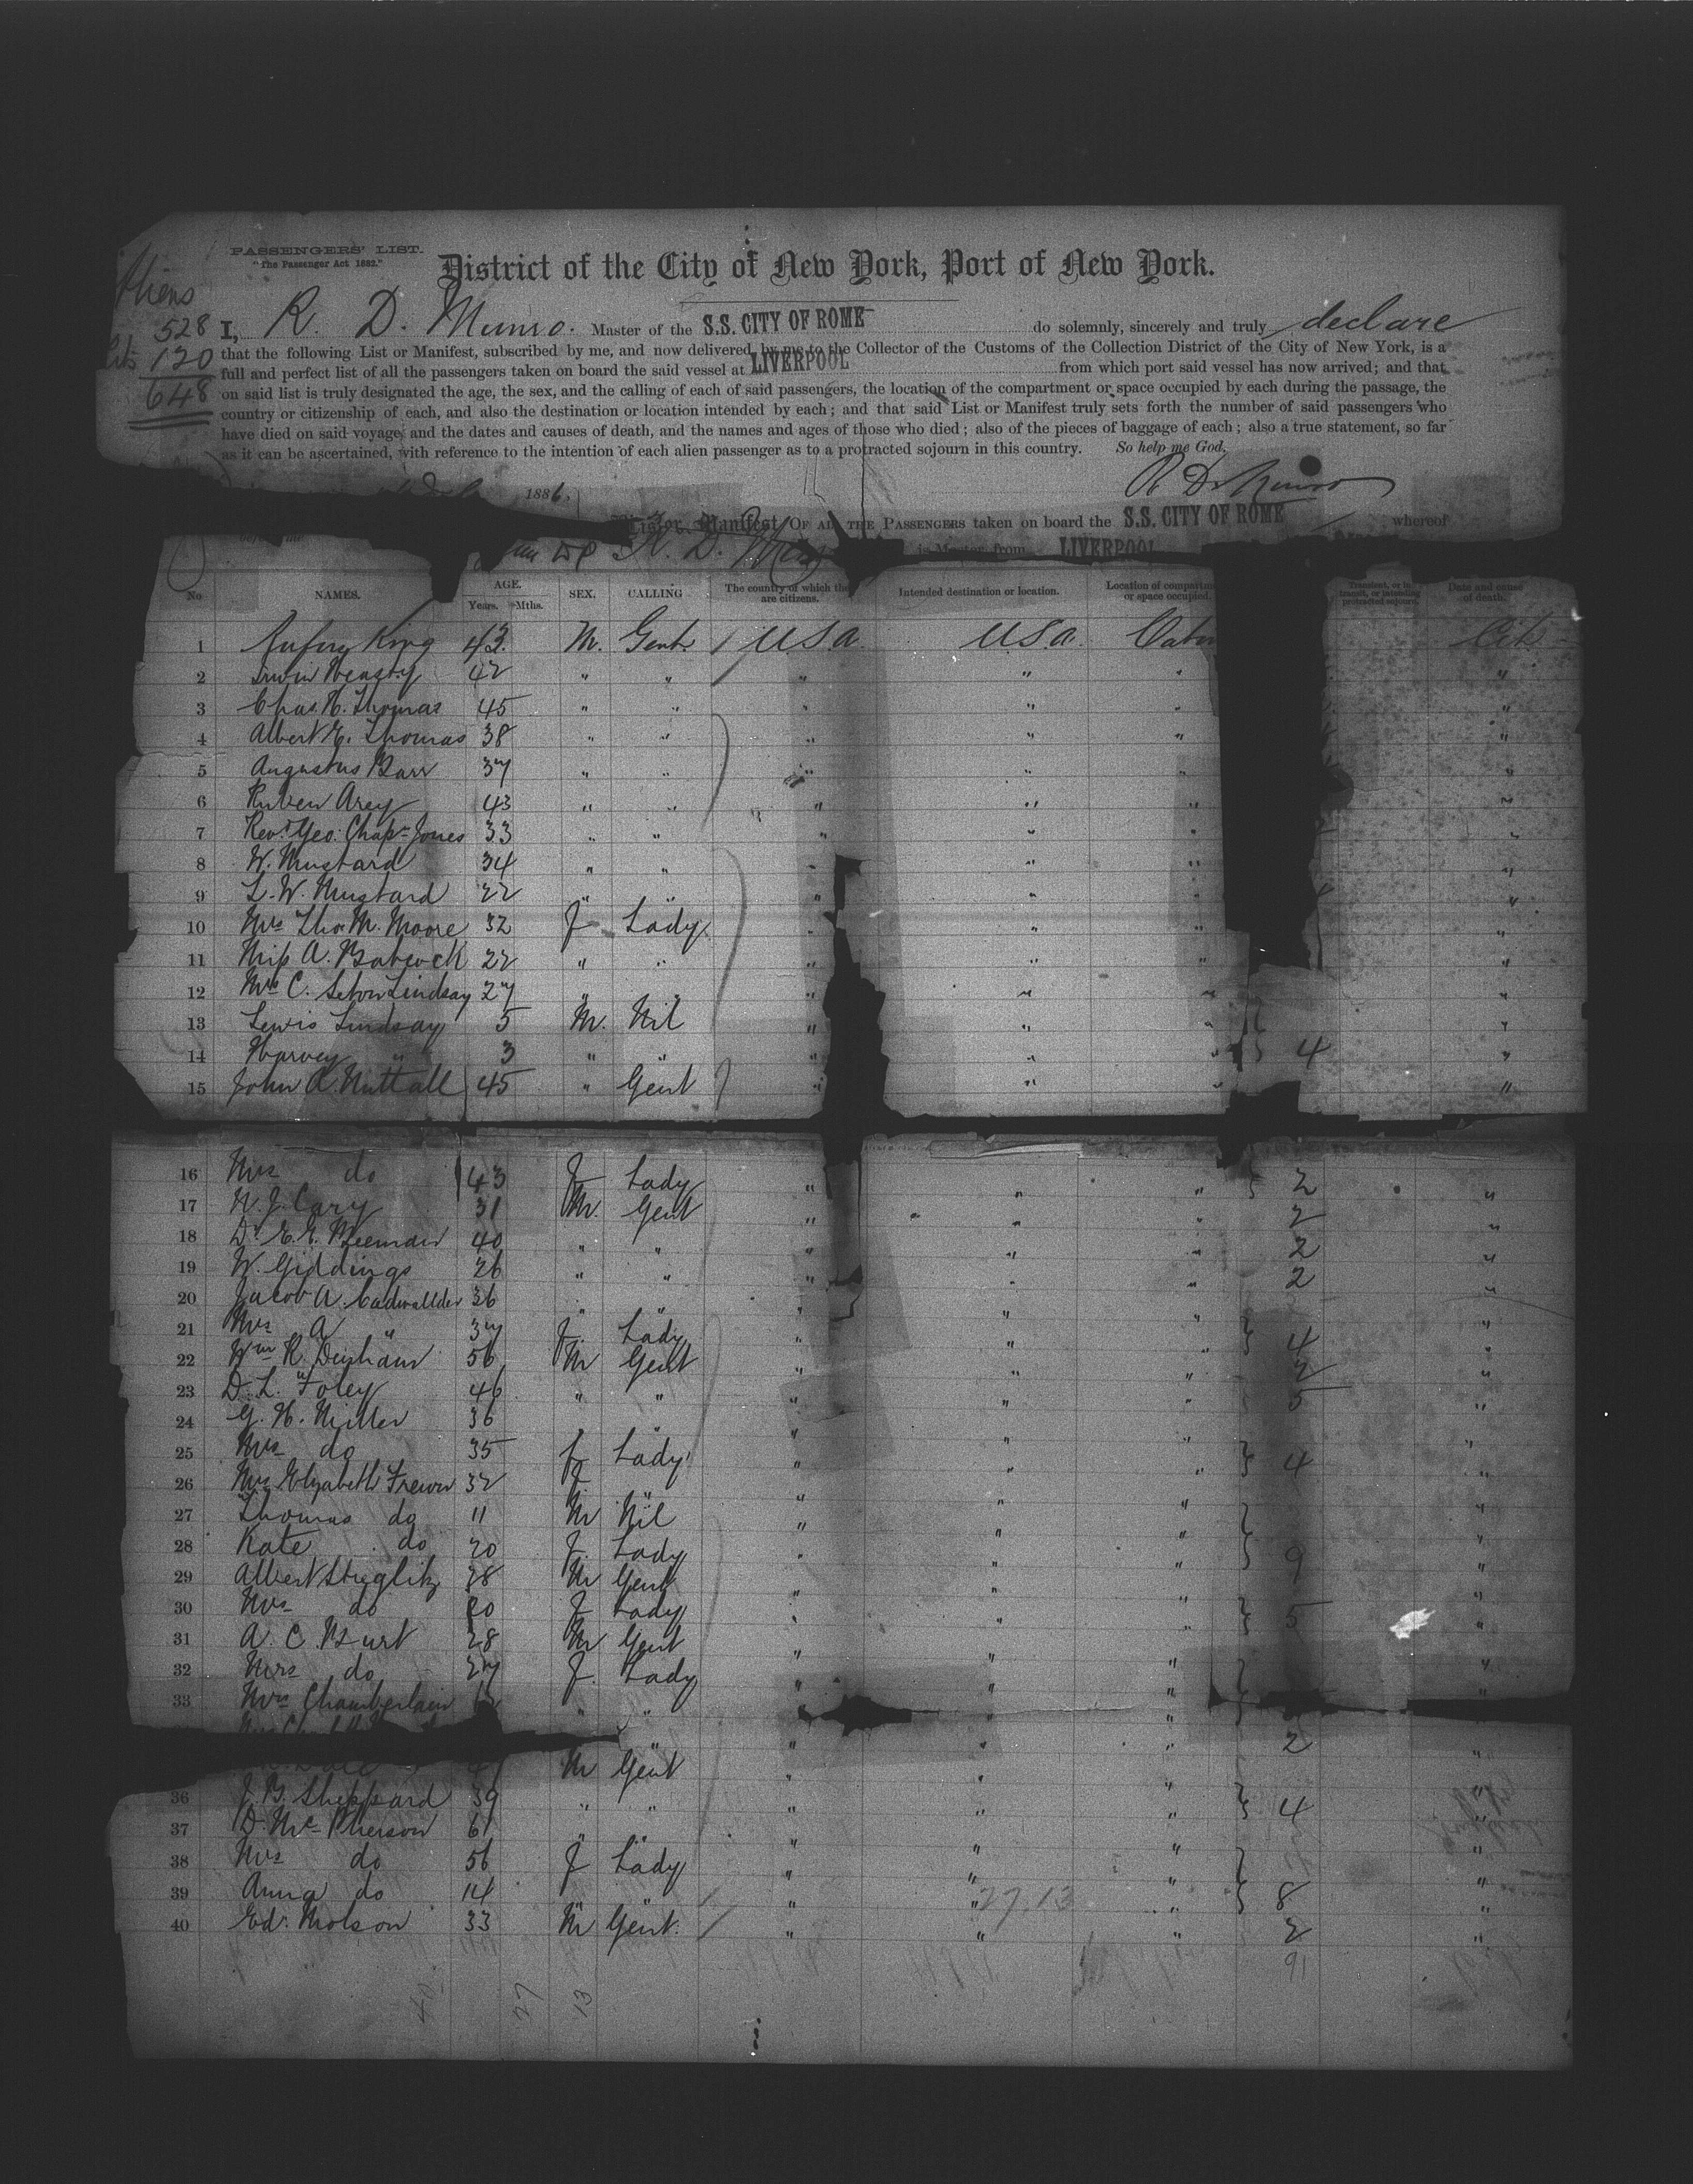 PASSENGERS' LIST.
"The Passenger Act 1882."
District of the City of New York, Port of New York.
Aliens
528
120
648
I, R. D. Munro. Master of the S.S. CITY OF ROME do solemnly, sincerely and truly declare
that the following List or Manifest, subscribed by me, and now delivered by me to the Collector of the Customs of the Collection District of the City of New York, is a
full and perfect list of all the passengers taken on board the said vessel at LIVERPOOL from which port said vessel has now arrived; and that
on said list is truly designated the age, the sex, and the calling of each of said passengers, the location of the compartment or space occupied by each during the passage, the
country or citizenship of each, and also the destination or location intended by each; and that said List or Manifest truly sets forth the number of said passengers who
have died on said voyage, and the dates and causes of death, and the names and ages of those who died; also of the pieces of baggage of each; also a true statement, so far
as it can be ascertained, with reference to the intention of each alien passenger as to a protracted sojourn in this country. So help me God.
1886. R D Munro
List or Manifest OF ALL THE PASSENGERS taken on board the S.S. CITY OF ROME whereof
R. D. Munro is Master, from LIVERPOOL
No NAMES. AGE. Years. Mths. SEX. CALLING The country of which they are citizens. Intended destination or location. Location of compartment or space occupied. Transient, or in transit, or intending protracted sojourn. Date and cause of death.
1 Rufus King 43 M. Gent USa USa. Cit
2 Irwin 42 " " " " " "
3 Chas. H. Thomas 45 " " " " " "
4 Albert E. Thomas 38 " " " " " "
5 Augustus Barr 37 " " " " " "
6 Ruben Arey 43 " " " " " "
7 Revd. Geo. Chapn Jones 33 " " " " " "
8 W. Mustard 34 " " " " " "
9 L. W. Mustard 22 " " " " " "
10 Mrs Thos. M. Moore 32 F Lady " " " "
11 Miss A. Babcock 22 " " " " " "
12 Mrs C. Seton Lindsay 27 " " " " " "
13 Lewis Lindsay 5 M. Nil " " " "
14 Harvey " 3 " " " " " 4 "
15 John A. Nuttall 45 " Gent " " " "
16 Mrs do 43 F Lady " " " 2 "
17 N. J. Cary 31 M. Gent " " " 2 "
18 Dr E. E. Beeman 40 " " " " " 2 "
19 W. Giddings 26 " " " " " 2 "
20 Jacob A. Cadwallder 36 " " " " " "
21 Mrs A " 37 F. Lady " " " 4 "
22 Wm R. Denham 56 M Gent " " " 2 "
23 D. L. Foley 46 " " " " " 5 "
24 G. H. Miller 36 " " " "
25 Mrs do 35 F Lady " " " 4 "
26 Mrs Elizabeth Frewin 32 F " " " " "
27 Thomas do 11 M Nil " " " "
28 Kate do 20 F. Lady " " " 9 "
29 Albert Stieglitz 28 M Gent " " " "
30 Mrs do 20 F Lady " " " 5 "
31 A. C. Burt 28 M Gent " " " "
32 Mrs do 27 F. Lady " " " "
33 Mrs Chamberlain " " " " " "
" " " " 2 "
M Gent " " " "
36 J. B. Sheppard 39 " " " " " 4 "
37 D. McPherson 61 " " " " " "
38 Mrs do 56 F Lady " " " "
39 Anna do 14 " " " " 27.13 " 8 "
40 Edr. Molson 33 M Gent. " " " 2 "
91
40 27 13